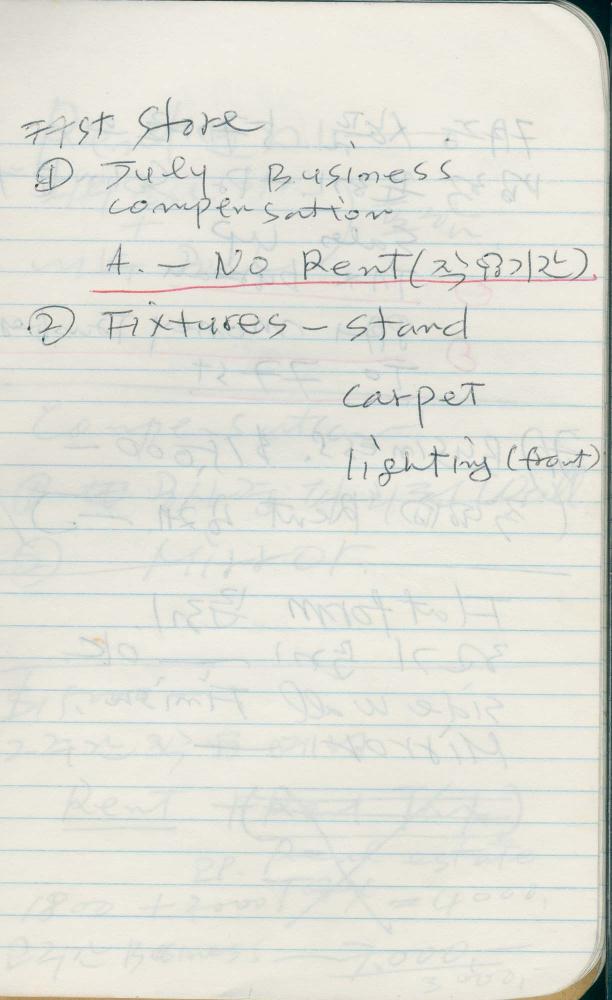 77st Store
① July Business
compensation
A. - No Rent (작업기간)
② Fixtures - stand
carpet
lighting (front)